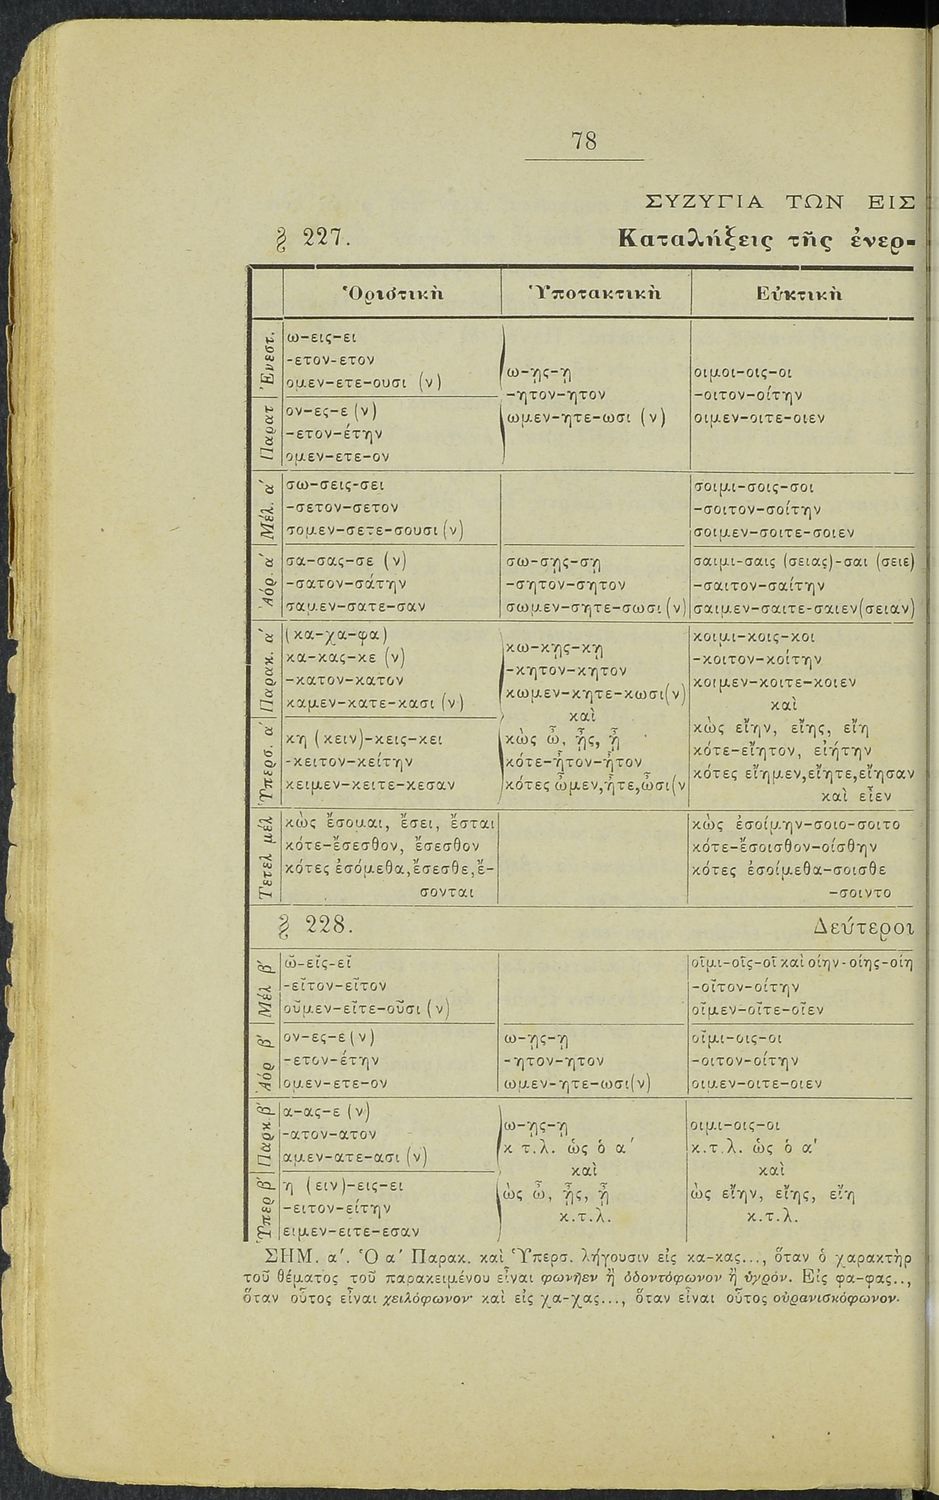 78
ΣΥΖΥΓΙΑ ΤΩΝ ΕΙΣ
§ 227. Καταλήξεις τῆς ἐνερ-
Ὁριστικὴ Ὑποτακτικὴ Εὐκτικὴ
Ἐνεστ.
ω-εις-ει
-ετον-ετον
ομεν-ετε-ουσι (ν)
Παρατ
ον-ες-ε (ν)
-ετον-έτην
ομεν-ετε-ον
ω-ῃς-ῃ
-ητον-ητον
ωμεν-ητε-ωσι (ν)
οιμοι-οις-οι
-οιτον-οίτην
οιμεν-οιτε-οιεν
Μέλ. α΄
σω-σεις-σει
-σετον-σετον
σομεν-σετε-σουσι (ν)
σοιμι-σοις-σοι
-σοιτον-σοίτην
σοιμεν-σοιτε-σοιεν
Ἀόρ. α΄
σα-σας-σε (ν)
-σατον-σάτην
σαμεν-σατε-σαν
σω-σῃς-σῃ
-σητον-σητον
σωμεν-σητε-σωσι (ν)
σαιμι-σαις (σειας)-σαι (σειε)
-σαιτον-σαίτην
σαιμεν-σαιτε-σαιεν(σειαν)
Παρακ. α΄
(κα-χα-φα)
κα-κας-κε (ν)
-κατον-κατον
καμεν-κατε-κασι (ν)
Ὑπερσ. α΄
κη (κειν)-κεις-κει
-κειτον-κείτην
κειμεν-κειτε-κεσαν
κω-κῃς-κῃ
-κητον-κητον
κωμεν-κητε-κωσι(ν)
καὶ
κὼς ὦ, ᾖς, ᾖ
κότε-ἦτον-ἦτον
κότες ὦμεν,ἦτε,ὦσι(ν
κοιμι-κοις-κοι
-κοιτον-κοίτην
κοιμεν-κοιτε-κοιεν
καὶ
κὼς εἴην, εἴης, εἴη
κότε-εἴητον, εἰήτην
κότες εἴημεν,εἴητε,εἴησαν
καὶ εἶεν
Τετελ μέλ
κὼς ἔσομαι, ἔσει, ἔσται
κότε-ἔσεσθον, ἔσεσθον
κότες ἐσόμεθα,ἔσεσθε,ἔ-
σονται
κὼς ἐσοίμην-σοιο-σοιτο
κότε-ἔσοισθον-οίσθην
κότες ἐσοίμεθα-σοισθε
-σοιντο
§ 228. Δεύτεροι
Μέλ β΄
ῶ-εῖς-εῖ
-εῖτον-εῖτον
οῦμεν-εῖτε-οῦσι (ν)
οῖμι-οῖς-οῖ καὶ οίην-οίης-οίη
-οῖτον-οίτην
οῖμεν-οῖτε-οῖεν
Ἀόρ β΄
ον-ες-ε (ν)
-ετον-έτην
ομεν-ετε-ον
ω-ῃς-ῃ
-ητον-ητον
ωμεν-ητε-ωσι(ν)
οῖμι-οις-οι
-οιτον-οίτην
οιμεν-οιτε-οιεν
Παρκ.β΄
α-ας-ε (ν)
-ατον-ατον
αμεν-ατε-ασι (ν)
Ὑπερ β΄
η (ειν)-εις-ει
-ειτον-είτην
ειμεν-ειτε-εσαν
ω-ῃς-ῃ
κ τ.λ. ὡς ὁ α΄
καὶ
ὡς ὦ, ᾖς, ᾖ
κ.τ.λ.
οιμι-οις-οι
κ.τ.λ. ὡς ὁ α΄
καὶ
ὡς εἴην, εἴης, εἴη
κ.τ.λ.
ΣΗΜ. α΄. Ὁ α΄ Παρακ. καὶ Ὑπερσ. λήγουσιν εἰς κα-κας..., ὅταν ὁ χαρακτὴρ
τοῦ θέματος τοῦ παρακειμένου εἶναι φωνῆεν ἢ ὀδοντόφωνον ἢ ὑγρόν. Εἰς φα-φας..,
ὅταν οὗτος εἶναι χειλόφωνον· καὶ εἰς χα-χας..., ὅταν εἶναι οὗτος οὐρανισκόφωνον.